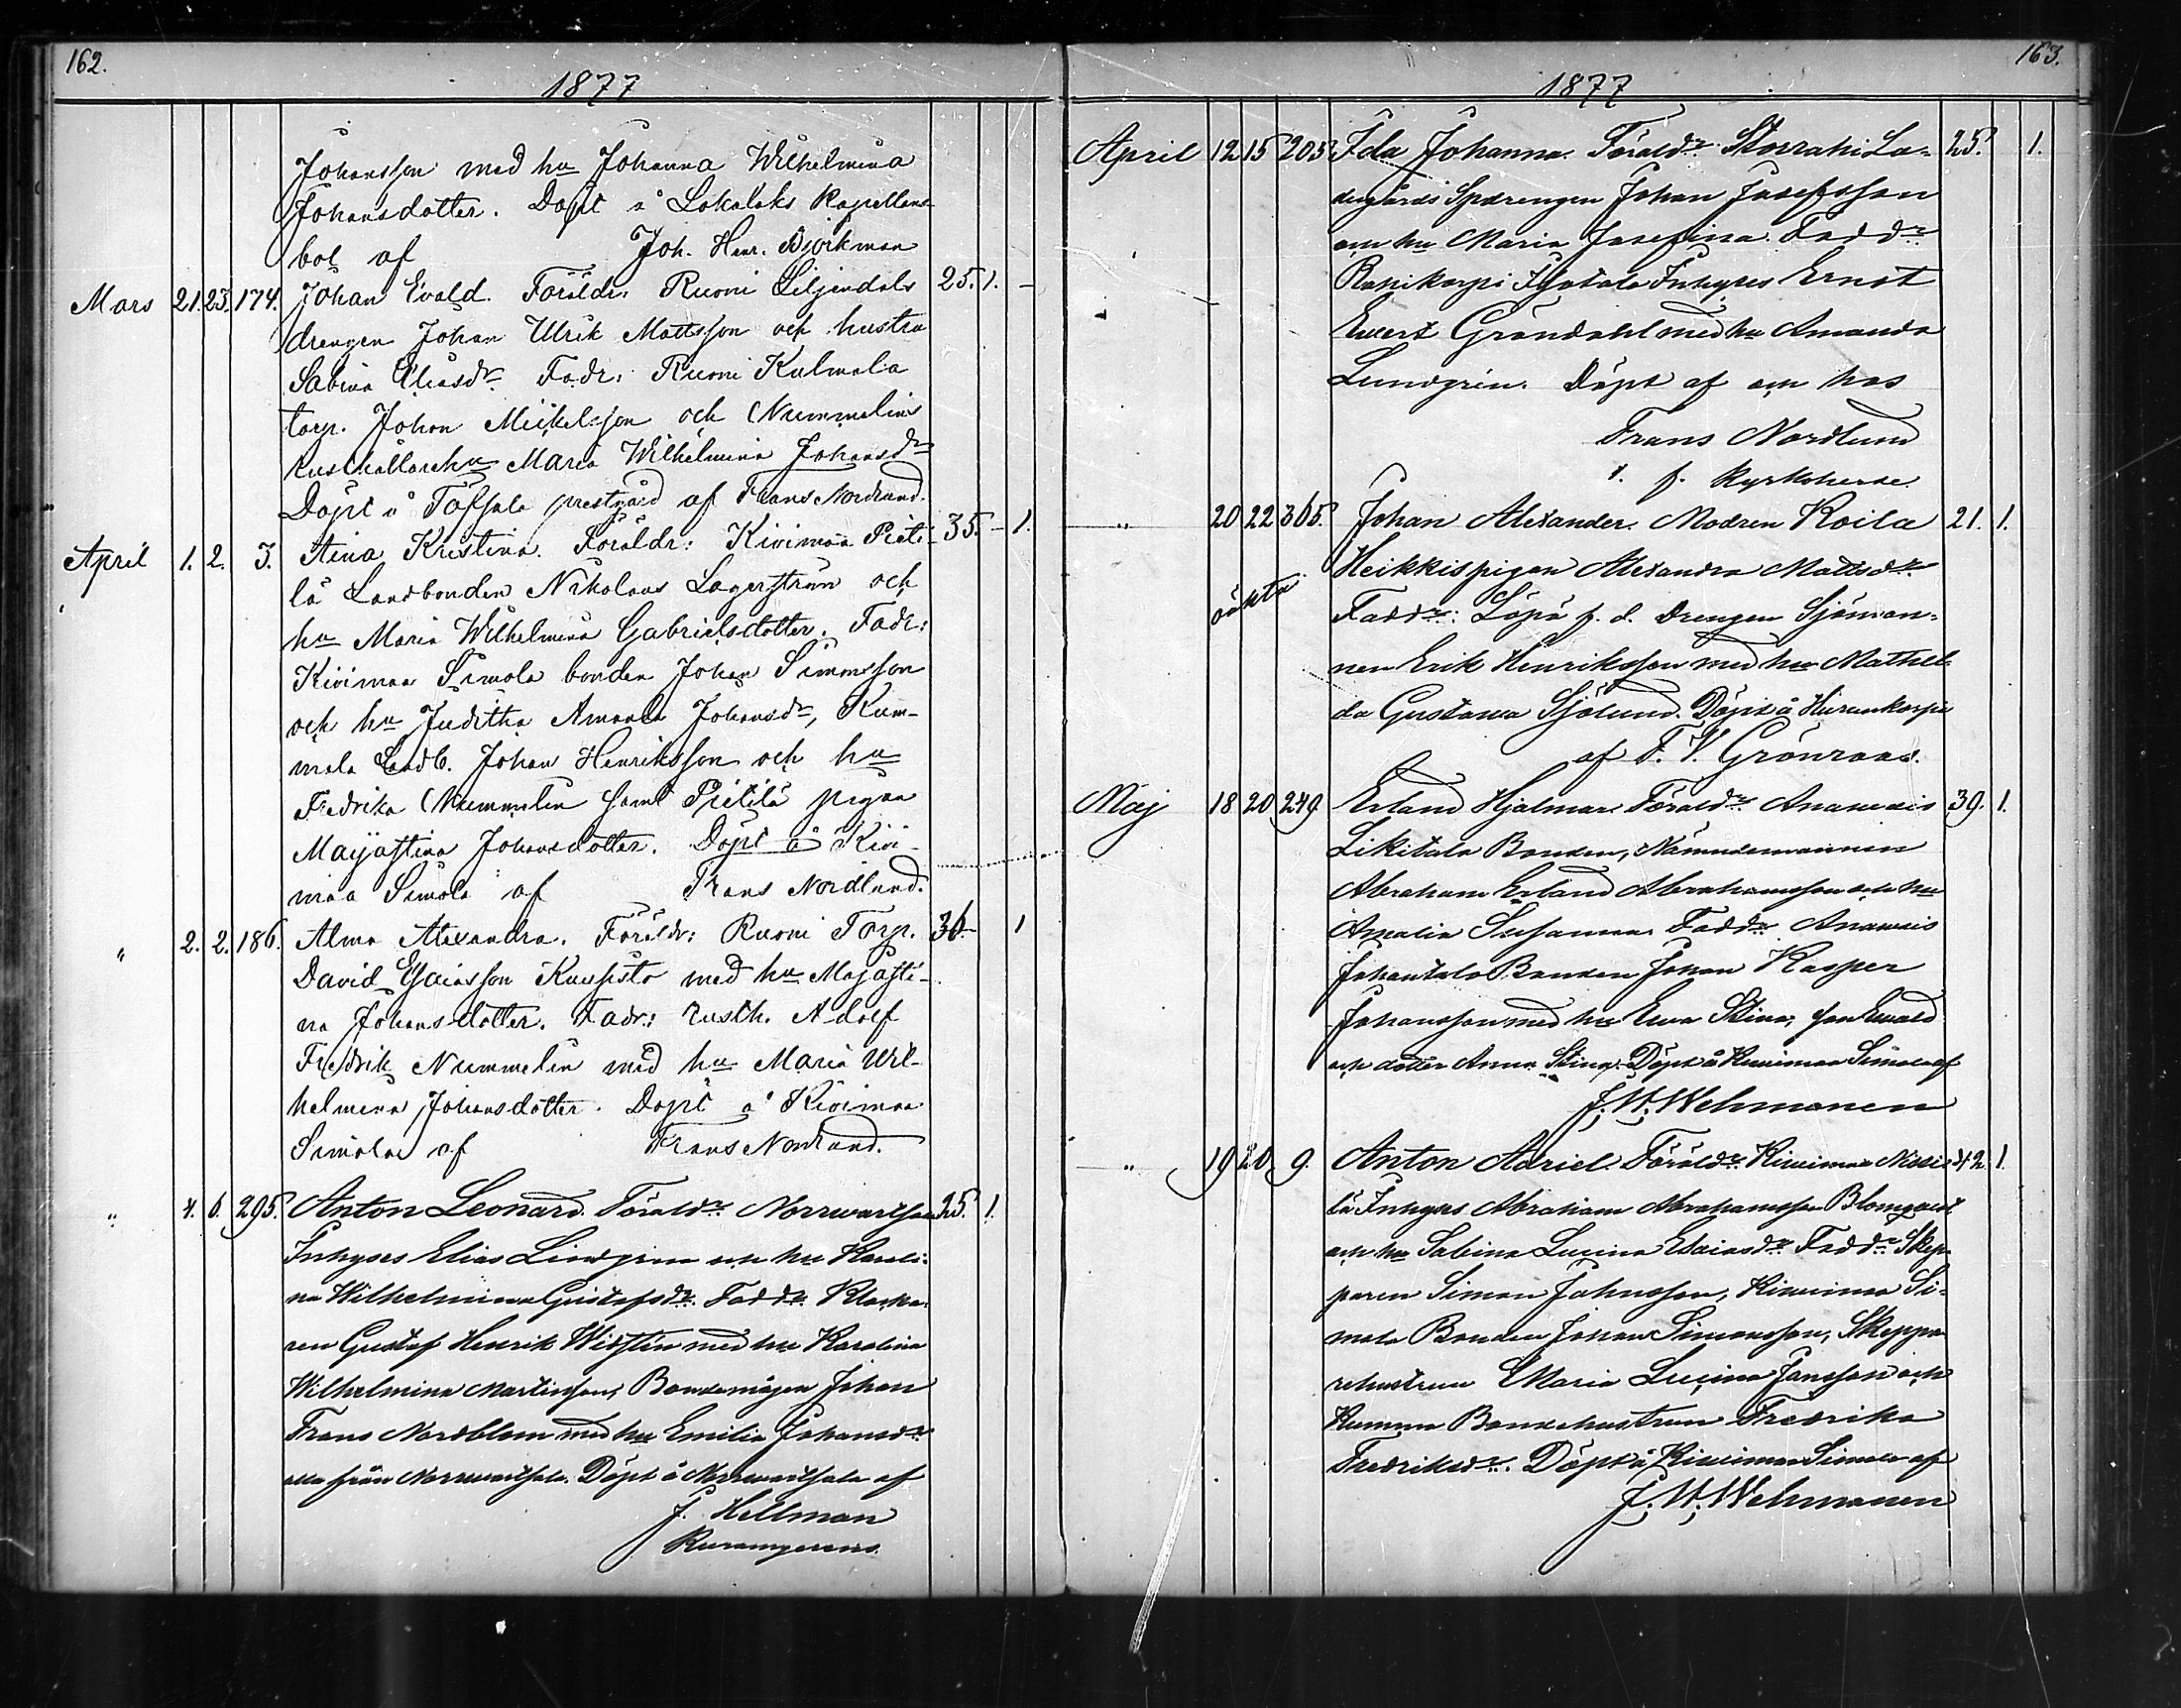 162.
1877
Johansson med hu Johanna Wilhelmina
Johansdotter. Döpt å Lokalaks Kapellans-
bol af Joh. Henr. Björkman
Mars 21. 23. 174. Johan Evald. Föräldr: Ruoni Liljendals 25. 1. -
drengen Johan Ulrik Mattsson och hustru
Sabina Eliasdr Fadr: Ruoni Kulmala
torp. Johan Mickelsson och Nummelins
rusthållarehu Maria Wilhelmina Johansdr
Döpt å Töfsala prestgård af Frans Nordlund.
April 1. 2. 3. Stina Kristina. Föräldr: Kivimaa Pieti- 35. - 1.
lä Landbonden Nikolaus Lagerström och
hu Maria Wilhelmina Gabrielsdotter. Fadr:
Kivimaa Simola bonden Johan Simonsson
och hu Juditha Amanda Johansdr, Kum-
mala Landb. Johan Henriksson och hu
Fredrika Nummelin samt Pietilä pigan
Majastina Johansdotter. Döpt å Kivi-
maa Simola af Frans Nordlund.
" 2. 2. 186. Alma Alexandra. Föräldr: Ruoni Torp. 36. - 1
David Esaiasson Kuusisto med hu Majasti-
na Johansdotter. Fadr: rusth. Adolf
Fredrik Nummelin med hu Maria Wil-
helmina Johansdotter. Döpt å Kivimaa
Simola af Frans Nordlund.
" 4. 6. 295. Anton Leonard. Föräldr Norrwartsala 25. 1.
Inhyses Elias Lindgren och hu Karoli-
na Wilhelmina Gustafsdr. Faddr Klocka-
ren Gustaf Henrik Widstén med hu Karolina
Wilhelmina Martinson, Bondemågen Johan
Frans Nordblom med hu Emilia Johansdr
alla från Norrwartsala. Döpt å Norrwartsala af
J. Hellman
163.
1877
April 12 15 205 Ida Johanna. Föräldr. Storrahi La- 25. 1.
degårds Spdrengen Johan Josefsson
och hu Maria Josefina. Faddr
Inhyses Ernst
Evert Gröndahl med hu Amanda
Lundgrén. Döpt af och hos
Frans Nordlund
t. f. Kyrkoherde.
" 20 22 365. Johan Alexander. Modren Koila 21. 1.
Heikkis pigan Alexandra Mattsdr
oäkta Faddr: Löpö f. d. Drengen Sjöman-
nen Erik Henriksson med hu Mathil-
da Gustava Sjölund. Döpt å Hirvenkorpi
af F. V. Grönroos.
Maj 18 20 249. Erland Hjalmar. Föräldr Anavais 39. 1.
Likitalo Bonden, Nämndemannen
Abraham Erland Abrahamsson och hu
Amalia Susanna. Faddr Anavais
Juhantalo Bonden Johan Kasper
Johansson med hu Eva Stina, son Ewald
och dotter Anna Stina. Döpt å Kivimaa Simola af
J. W. Wehmanen
" 19 20 9. Anton Adriel. Föräldr Kivimaa Nissi- 42. 1.
lä Inhyses Abraham Abrahamsson Blomqvist
och hu Sabina Lucina Esaiasdr. Faddr Skep-
paren Simon Johnsson, Kivimaa Si-
mola Bonden Johan Simonsson, Skeppa-
rehustrun Maria Lucina Jansson och
Bondehustrun Fredrika
Fredriksdr. Döpt å Kivimaa Simola af
J. W. Wehmanen